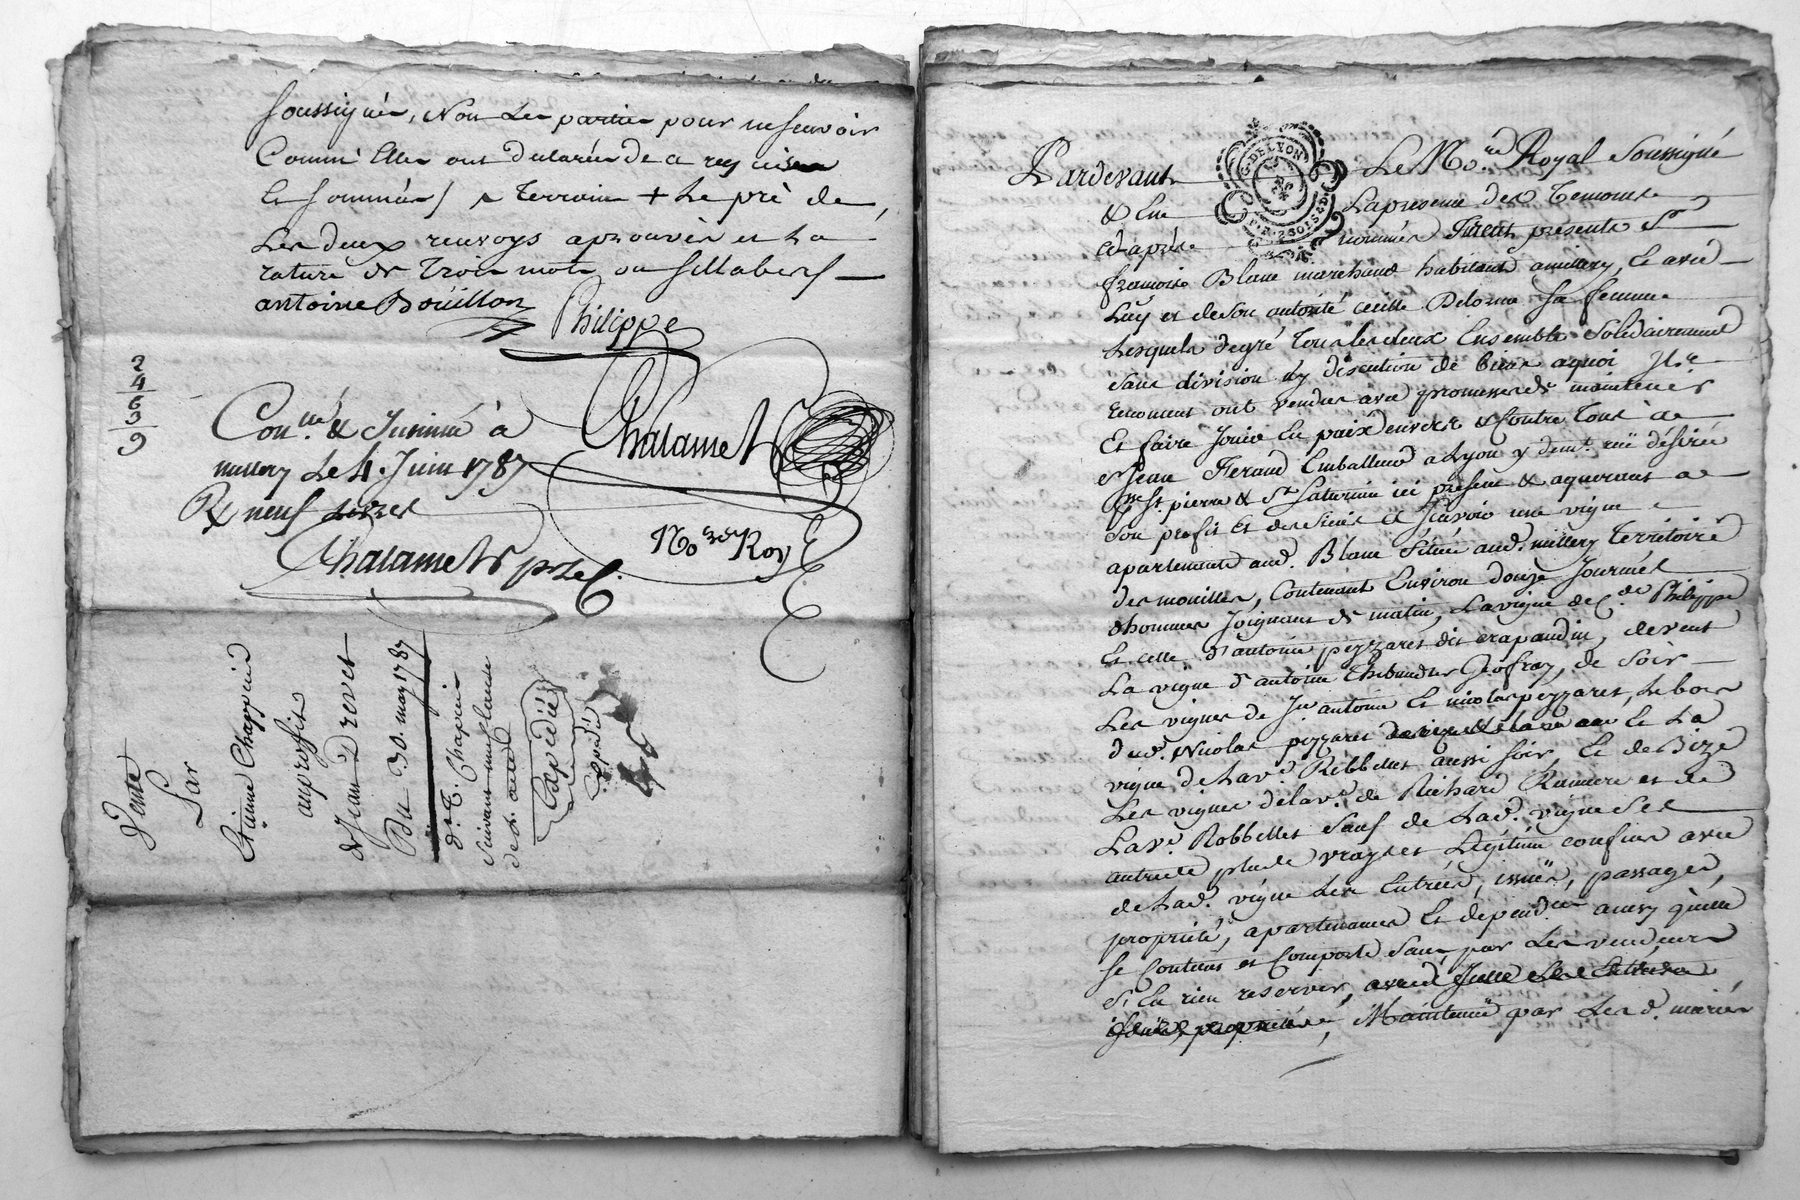 soussignés, Non les parties pour ne scavoir
Comme Elles ont declarées de ce requises
Et sommées / terrain + Le pré de,
Les deux renvoys aprouvés et La
rature de trois mots ou sillabes /
antoine Boüillon
Philippe
Chalamel
No.re Roy
2
4
6
3
9
Con.lé & Insinué à
millery Le 4 Juin 1787
R neuf livres
Chalamel
Vente
Par
Etienne Chappuis
au profit
de Jean Drevet
Du 30. may 1787
d. E. Chapuis
suivant une clause
Expédiée
Expédié
Pardevant Le No.re Royal Soussigné
& En La presence des Temoins
cy après nommés Furent présents Sr
françois Blanc marchand habitant a millery, Et avec
Luy et de son autorité Sa femme
Lesquels de gré Tous les deux Ensemble Solidairement
sans division ny discution de biens a quoi Ils
renoncent ont vendus avec promesses de maintenir
Et faire Jouir En paix envers & Contre Tous à
Sr Jean Feraud Emballeur a Lyon y dem.t rüe désirée
St pierre & St Saturnin ici présent & aquerant a
Son profit Et des Siens Sçavoir une vigne
apartenante aud. Blanc Située aud. millery Territoire
des mouilles, Contenant Environ douze Journées
d'hommes Joignant de matin, La vigne de C.de Philippe
Et celle d'antoine pezzaret dit crapaudin, de vent
La vigne d'antoine Geofray, de Soir
Les vignes de Jn antoine Et nicolas pezzaret, Le bois
dud. Nicolas pezzaret Et La
vigne de La v.e Robbellet aussi Soir, Et de Bize
Les vignes de La v.e de Richard Et de
La v.e Robbellet Sauf de Lad. vigne Ses
autres plus vrays et Legitimes confins avec
de Lad. vigne Les Entrées, issües, passages,
propriétés, apartenances Et dépend.ces ainsy qu'elle
se Contient et Comporte Sans par Les vendeurs
S'en rien reserver,
Maintenue par Lesd. mariés